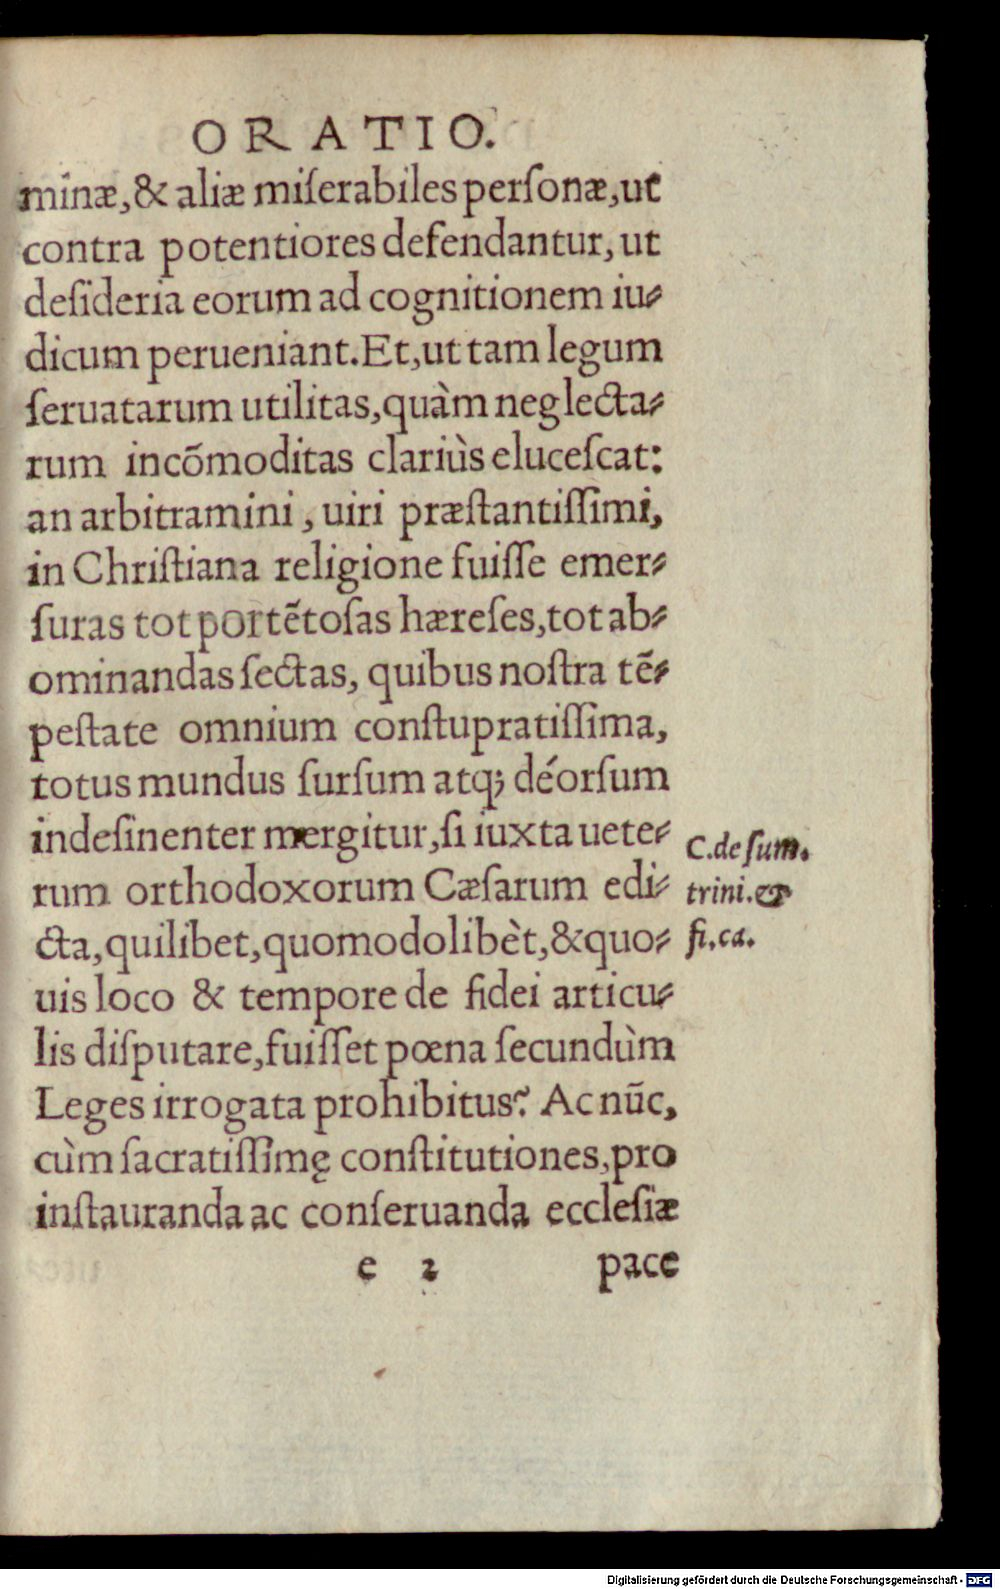 ORATIO.
minæ, & aliæ miſerabiles perſonæ, ut
contra potentiores defendantur, ut
deſideria eorum ad cognitionem iu⸗
dicum perueniant. Et, ut tam legum
ſeruatarum utilitas, quàm neglecta⸗
rum incõmoditas clariùs eluceſcat:
an arbitramini, uiri præſtantiſſimi,
in Chriſtiana religione fuiſſe emer⸗
ſuras tot portẽtoſas hæreſes, tot ab⸗
ominandas ſectas, quibus noſtra tẽ⸗
peſtate omnium conſtupratiſſima,
totus mundus ſurſum atq; déorſum
indeſinenter mergitur, ſi iuxta uete⸗
rum orthodoxorum Cæſarum edi⸗
cta, quilibet, quomodolibèt, & quo⸗
uis loco & tempore de fidei articu⸗
lis diſputare, fuiſſet pœna ſecundùm
Leges irrogata prohibitus? Ac nũc,
cùm ſacratiſſimę conſtitutiones, pro
inſtauranda ac conſeruanda eccleſiæ
e 2 pace
C. de ſum.
trini. &
fi. ca.
Digitalisierung gefördert durch die Deutsche Forschungsgemeinschaft - DFG